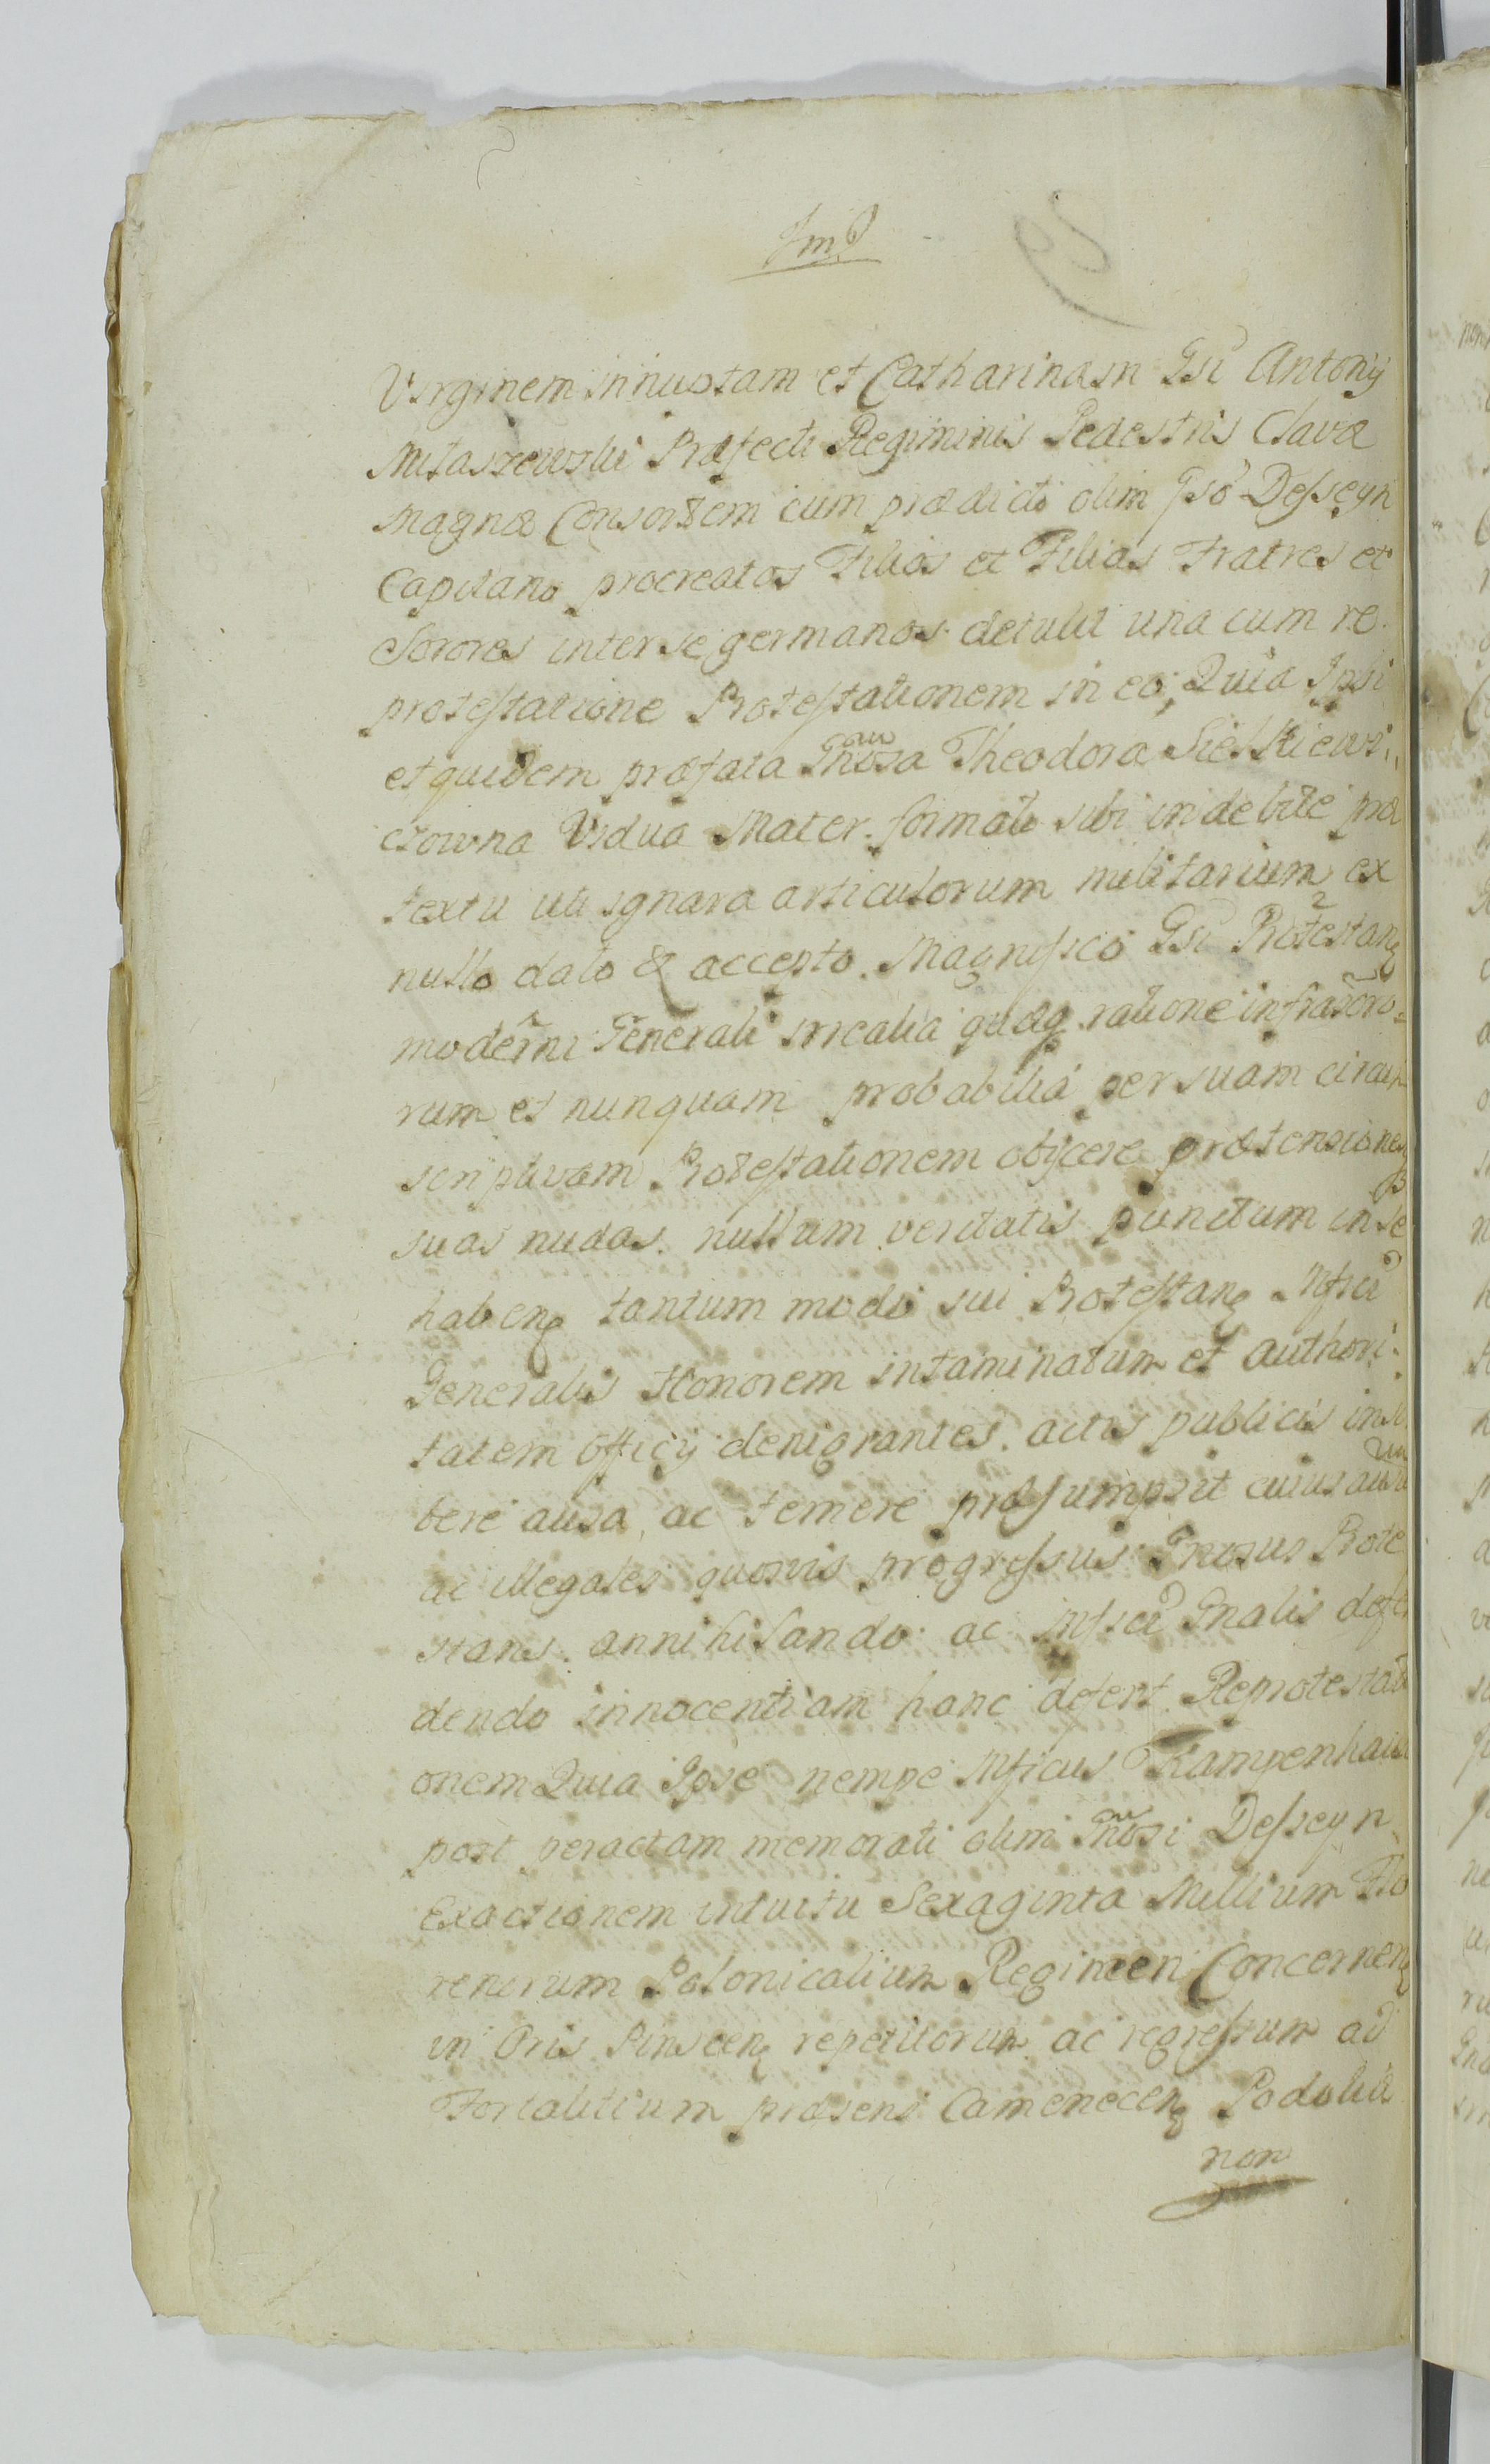 Virginem innuptam et Catharinam Gsi Antonij
Milaszewski Præfecti Regiminis Pedestris Clavæ
Magnæ Consortem cum prædicto olim Gso Desseyn
Capitano procreatos Filios et Filias Fratres et
Sorores inter se germanos detulit una cum re
protestatione Protestationem in eo, Quia Ipsi
et quidem præfata Gnosa Theodora
czowna Vidua Mater formato sibi indebite præ
textu uti ignara articulorum militarium ex
nullo dato & accepto Magnifico Gsi Protestang
moderni Generali irrealia quæq ratione infrascro=
rum et nunquam probabilia per suam circum
scriptivam Protestationem objicere prætensiones
suas nudas nullum veritatis punctum in se
habeng tantum modo sui Protestang Mfici
Generalis Honorem intaminatum et authori
tatem officij denigrantes actis publicis inscri
bere ausa ac temere præsumpsit cuius
ac illegales quosvis progressus Gnosus Prote
stans annihilando ac Mfici Gnalis defen
dendo innocentiam hanc defert Reprotestati
onem Quia Ipse nempe Mficus Kampenhau
post peractam memorati olim Gnosi Desseyn
Exactionem intuitu Sexaginta Millium Flo
renorum Polonicalium Regimen Concerneng
in Oris Pinsceng repetitorum ac regressum ad
Fortalitium præsens Cameneceng Podoliæ
non